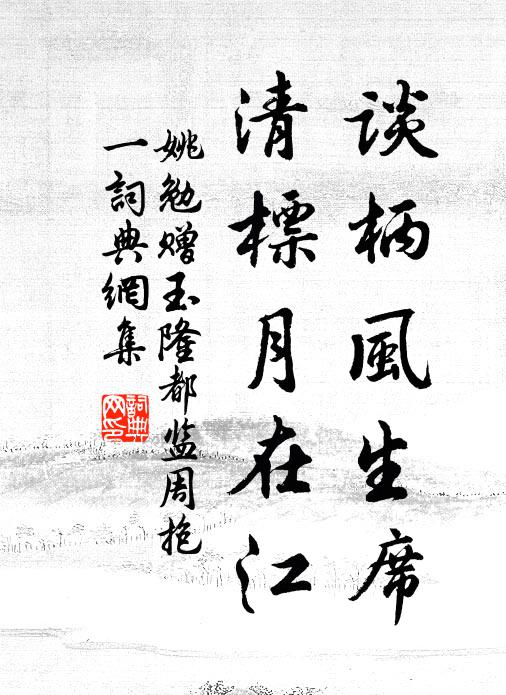 谈柄風生席
清標月在江
姚勉赠玉隆都监周抱
一詞典網集
詞典网印